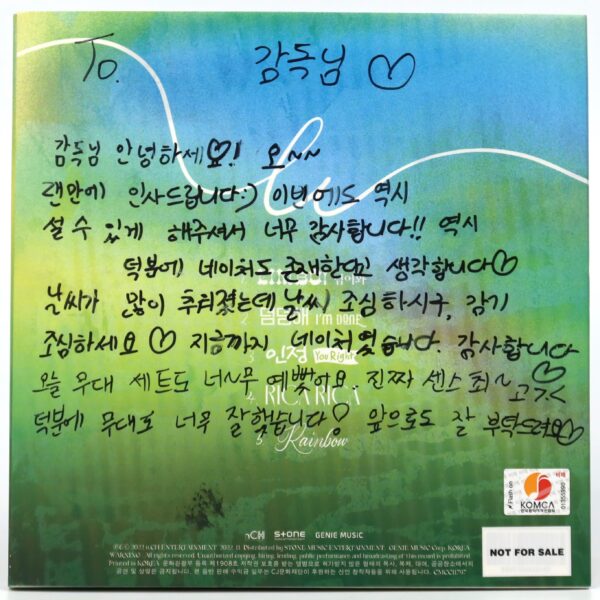 To. 감독님 ♡
감독님 안녕하세요! 오~~
랜만에 인사드립니다:) 이번에도 역시
설 수 있게 해주셔서 너무 감사합니다!! 역시
덕분에 네이처도 존재한다고 생각합니다♡
날씨가 많이 추워졌는데 날씨 조심하시구, 감기
I'M DONE
조심하세요♡ 지금까지 네이처였습니다. 감사합니다
3 인정 You Right
오늘 무대 세트도 너~무 예뻤어요. 진짜 센스 최~고 ♡
4 RICA RICA
덕분에 무대도 너무 잘했습니다! 앞으로도 잘 부탁드려요♡
5 Rainbow
Flash on
비매
01355990
KOMCA
한국음악저작권협회
nCH STONE MUSIC ENTERTAINMENT GENIE MUSIC
NOT FOR SALE